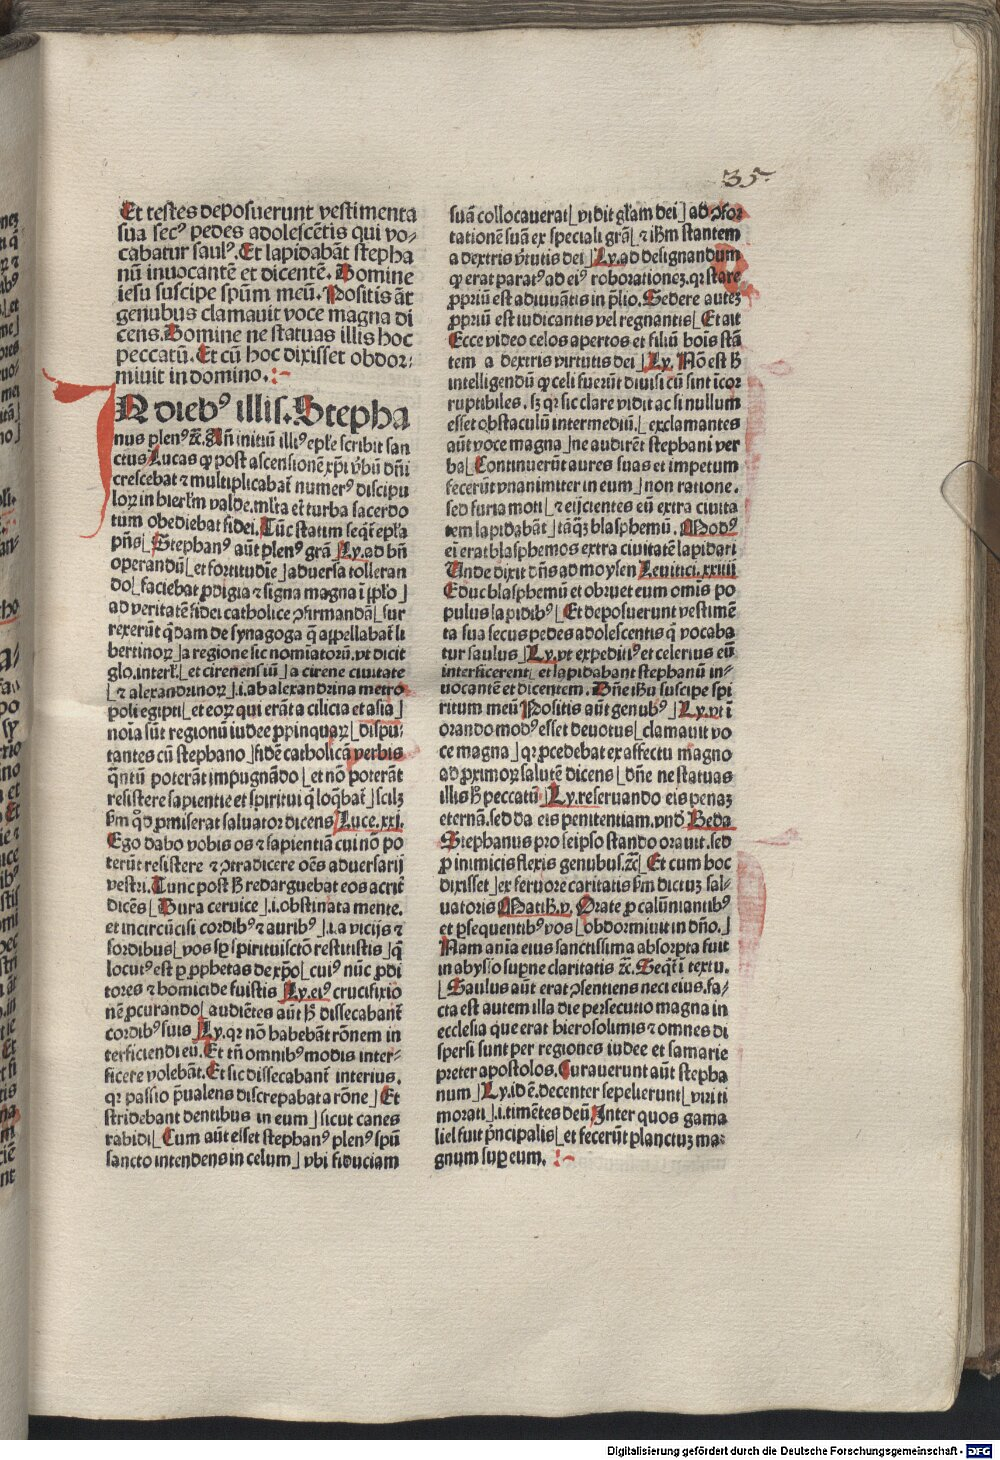 35.
Et testes deposuerunt vestimenta
sua secꝰ pedes adolescētis qui vo⸗
cabatur saulꝰ. Et lapidabāt stepha
nū inuocantē et dicentē. Domine
iesu suscipe spūm meū. Positis āt
genubus clamauit voce magna di
cens. Domine ne statuas illis hoc
peccatū. Et cū hoc dixisset obdor⸗
miuit in domino. :~
IN diebꝰ illis. Stepha
nus plenꝰ ꝛc̄. An̄ initiū illiꝰ eple scribit san
ctus Lucas ꝙ post ascensionē xp̄i v̓bū dn̄i
crescebat ⁊ multiplicabat̄ numerꝰ discipu
loꝝ in hierl̄m valde. ml̓ta et turba sacerdo
tum obediebat fidei. Tūc statim seqt̄ epl̓a
pn̄s ⌊ Stephanꝰ aūt plenꝰ grā ⌋ Ly. ad bn̄
operandū ⌊ et fortitudīe ⌋ aduersa tolleran
do ⌊ faciebat ꝓdigia ⁊ signa magna ī pp̄lo ⌋
ad veritatē fidei catholice ꝯfirmandā ⌊ sur
rexerūt q̄dam de synagoga q̄ appellabat̄ li
bertinoꝝ ⌋ a regione sic nomiatorū. vt dicit
glo. interl̄. ⌊ et cirenensiū ⌋ a cirene ciuitate
⌊ ⁊ alexandrinoꝝ ⌋ .i. ab alexandrina metro
poli egipti ⌊ et eoꝝ qui erāt a cilicia et asia ⌋
noīa sūt regionū iudee ꝓpinquaꝝ ⌊ dispu⸗
tantes cū stephano ⌋ fidē catholicā verbis
q̄ntū poterāt impugnādo ⌊ et nō poterāt
resistere sapientie et spiritui q̄ loq̄bat̄ ⌋ scilꝫ
ẜm qd̓ ꝓmiserat saluator dicens Luce. xxi.
Ego dabo vobis os ⁊ sapientiā cui nō po
terūt resistere ⁊ ꝯtradicere oēs aduersarij
vestri. Tunc post ħ redarguebat eos acrit̄
dicēs ⌊ Dura ceruice ⌋ .i. obstinata mente.
et incircūcisi cordibꝰ ⁊ auribꝰ ⌋ .i. a vicijs ⁊
sordibus ⌊ vos sp̄ spirituiscto restitistis ⌋ q̄
locutꝰ est ꝑ ꝓphetas de xp̄o ⌊ cuiꝰ nūc ꝓdi
tores ⁊ homicide fuistis ⌊ Ly. eiꝰ crucifixio
nē ꝓcurando ⌊ audiētes aūt ħ dissecabant̄
cordibꝰ suis ⌋ Ly. qꝛ nō habebāt rōnem in
terficiendi eū. Et tn̄ omnibꝰ modis inter⸗
ficere volebāt. Et sic dissecabant̄ interius.
qꝛ passio p̄ualens discrepabat a rōne ⌋ Et
stridebant dentibus in eum ⌋ sicut canes
rabidi ⌊ Cum aūt esset stephanꝰ plenꝰ spū
sancto intendens in celum ⌋ vbi fiduciam
suā collocauerat ⌊ vidit gl̄am dei ⌋ ad ꝯfor
tationē suā ex speciali grā ⌊ ⁊ ih̄m stantem
a dextris v̓tutis dei ⌊ Ly. ad designandum
ꝙ erat paratꝰ ad eiꝰ roborationeꝫ. qꝛ stare
ꝓpriū est adiuuātis in p̄lio. Sedere auteꝫ
ꝓpriū est iudicantis vel regnantis ⌊ Et ait
Ecce video celos apertos et filiū hoīs stā
tem a dextris virtutis dei ⌋ Ly. Nō est ħ
intelligendū ꝙ celi fuerūt diuisi cū sint īcor
ruptibiles. sꝫ qꝛ sic clare vidit ac si nullum
esset obstaculū intermediū. ⌊ exclamantes
aūt voce magna ⌋ ne audirēt stephani ver
ba ⌊ Continuerūt aures suas et impetum
fecerūt vnanimiter in eum ⌋ non ratione.
sed furia moti ⌊ ⁊ eijcientes eū extra ciuita
tem lapidabāt ⌋ tāq̄ꝫ blasphemū. Modꝰ
ei erat blasphemos extra ciuitatē lapidari
Unde dixit dn̄s ad moysen Leuitici. xxiiij
Educ blasphemū et obruet eum omīs po
pulus lapidibꝰ ⌊ Et deposuerunt vestimē
ta sua secus pedes adolescentis q̄ vocaba
tur saulus ⌋ Ly. vt expeditiꝰ et celerius eū
interficerent ⌊ et lapidabant stephanū in⸗
uocantē et dicentem. Dn̄e ih̄u suscipe spi
ritum meū Positis aūt genubꝰ ⌋ Ly. vt ī
orando modꝰ esset deuotus ⌊ clamauit vo
ce magna ⌋ qꝛ ꝓcedebat ex affectu magno
ad ꝓximoꝝ salutē dicens ⌊ dn̄e ne statuas
illis ħ peccatū ⌊ Ly. reseruando eis penaꝫ
eternā. sed da eis penitentiam. vnd̓ Beda
Stephanus pro seipso stando orauit. sed
ꝓ inimicis flexis genubus. ꝛc̄ ⌊ Et cum hoc
dixisset ⌋ ex feruore caritatis ẜm dictuꝫ sal⸗
uatoris Math. v. Orate ꝓ calūniantibꝰ
et ꝑsequentibꝰ vos ⌊ obdormiuit in dn̄o. ⌋
Nam anīa eius sanctissima absorpta fuit
in abysso suꝑne claritatis ꝛc̄. Seqt̄ ī textu.
⌊ Saulus aūt erat ꝯsentiens neci eius. fa⸗
cta est autem illa die persecutio magna in
ecclesia que erat hierosolimis ⁊ omnes di
spersi sunt per regiones iudee et samarie
preter apostolos. Curauerunt aūt stepha
num ⌋ Ly. id ē. decenter sepelierunt ⌊ viri ti
morati ⌋ .i. timētes deū ⌋ Inter quos gama
liel fuit p̓ncipalis ⌊ et fecerūt planctuꝫ ma⸗
gnum suꝑ eum. :~
Digitalisierung gefördert durch die Deutsche Forschungsgemeinschaft - DFG